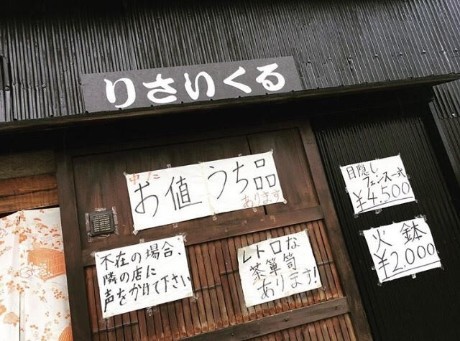 りさいくる
中に
お値うち品
あります
目隠し
フェンス一丈
¥4,500
不在の場合、
隣の店に
声をかけて下さい
レトロな
茶箪笥
あります!
火鉢
¥2,000